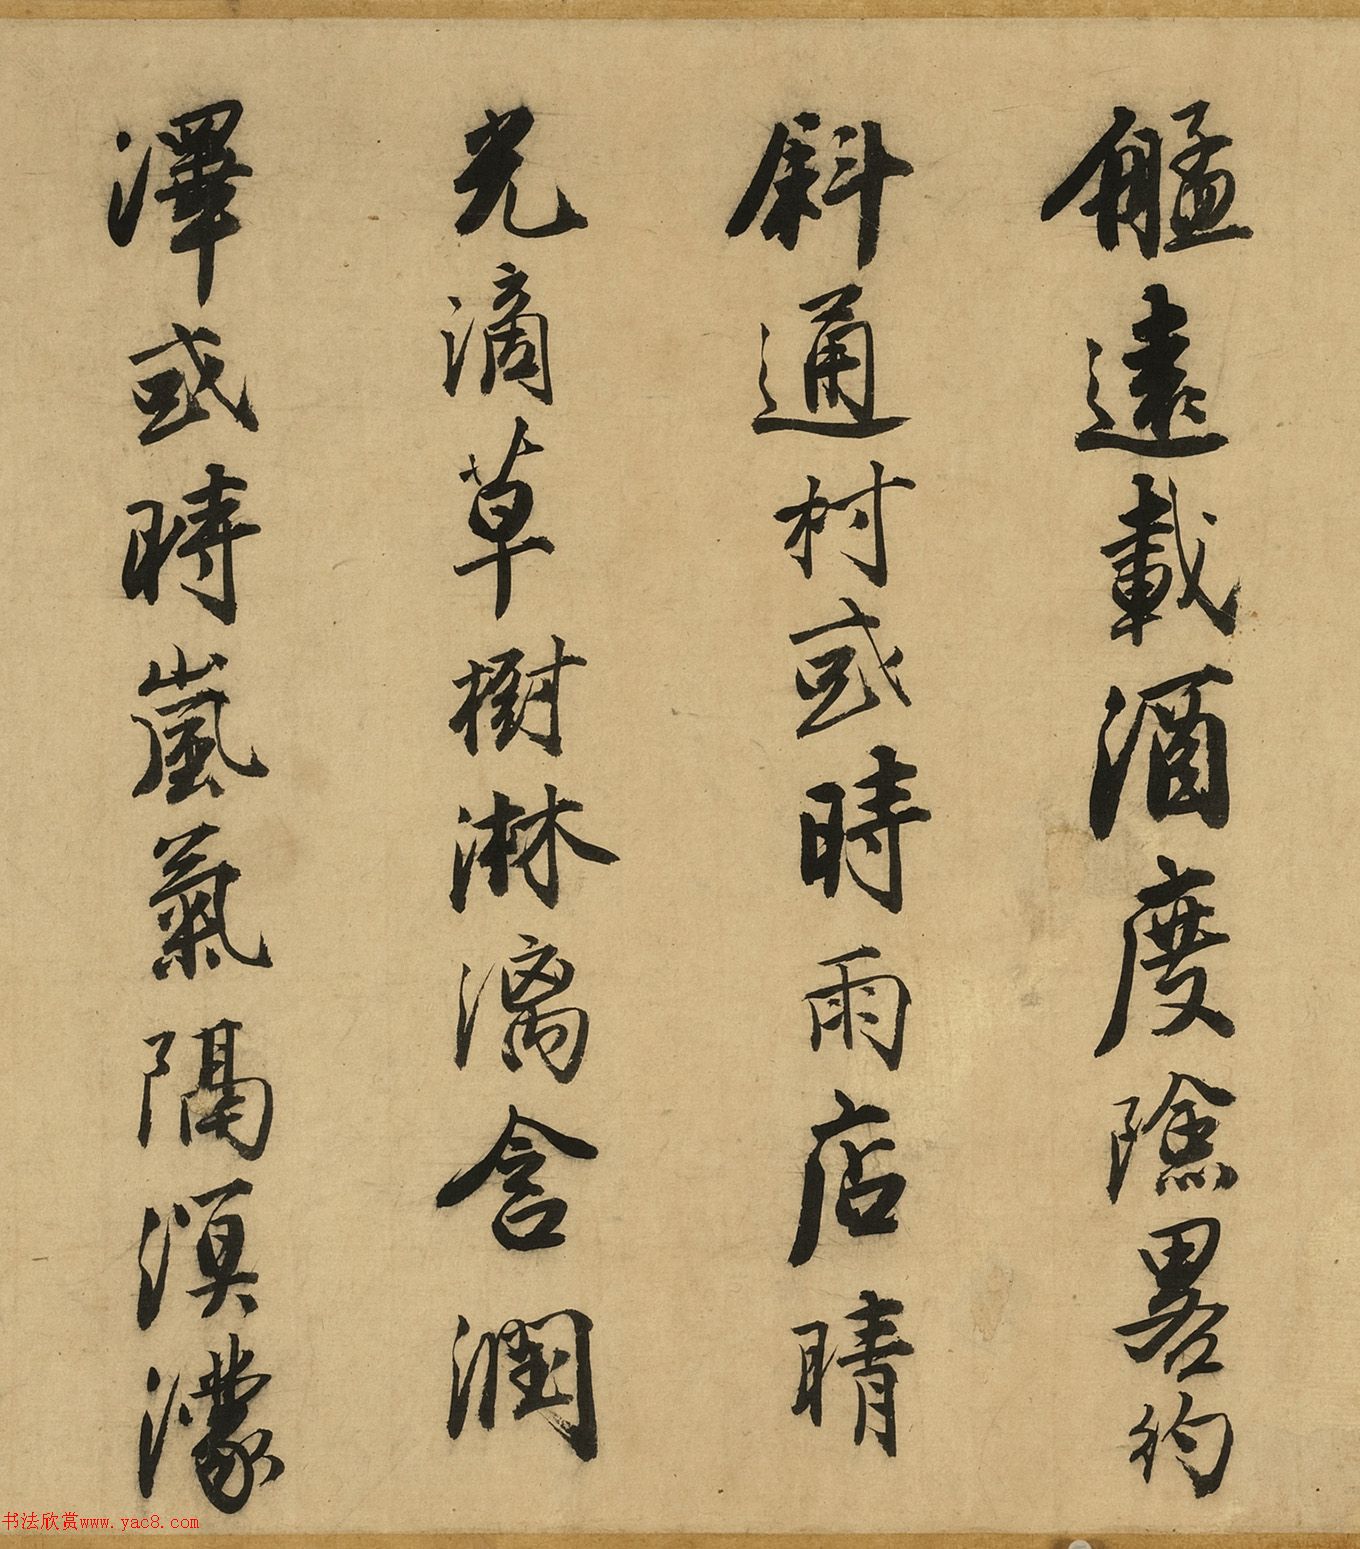 艋遠載酒度隂畧彴
斜通村或時雨店晴
光滴草樹淋漓含潤
澤或時嵐氣隔溟濛
书法欣赏www.yac8.com